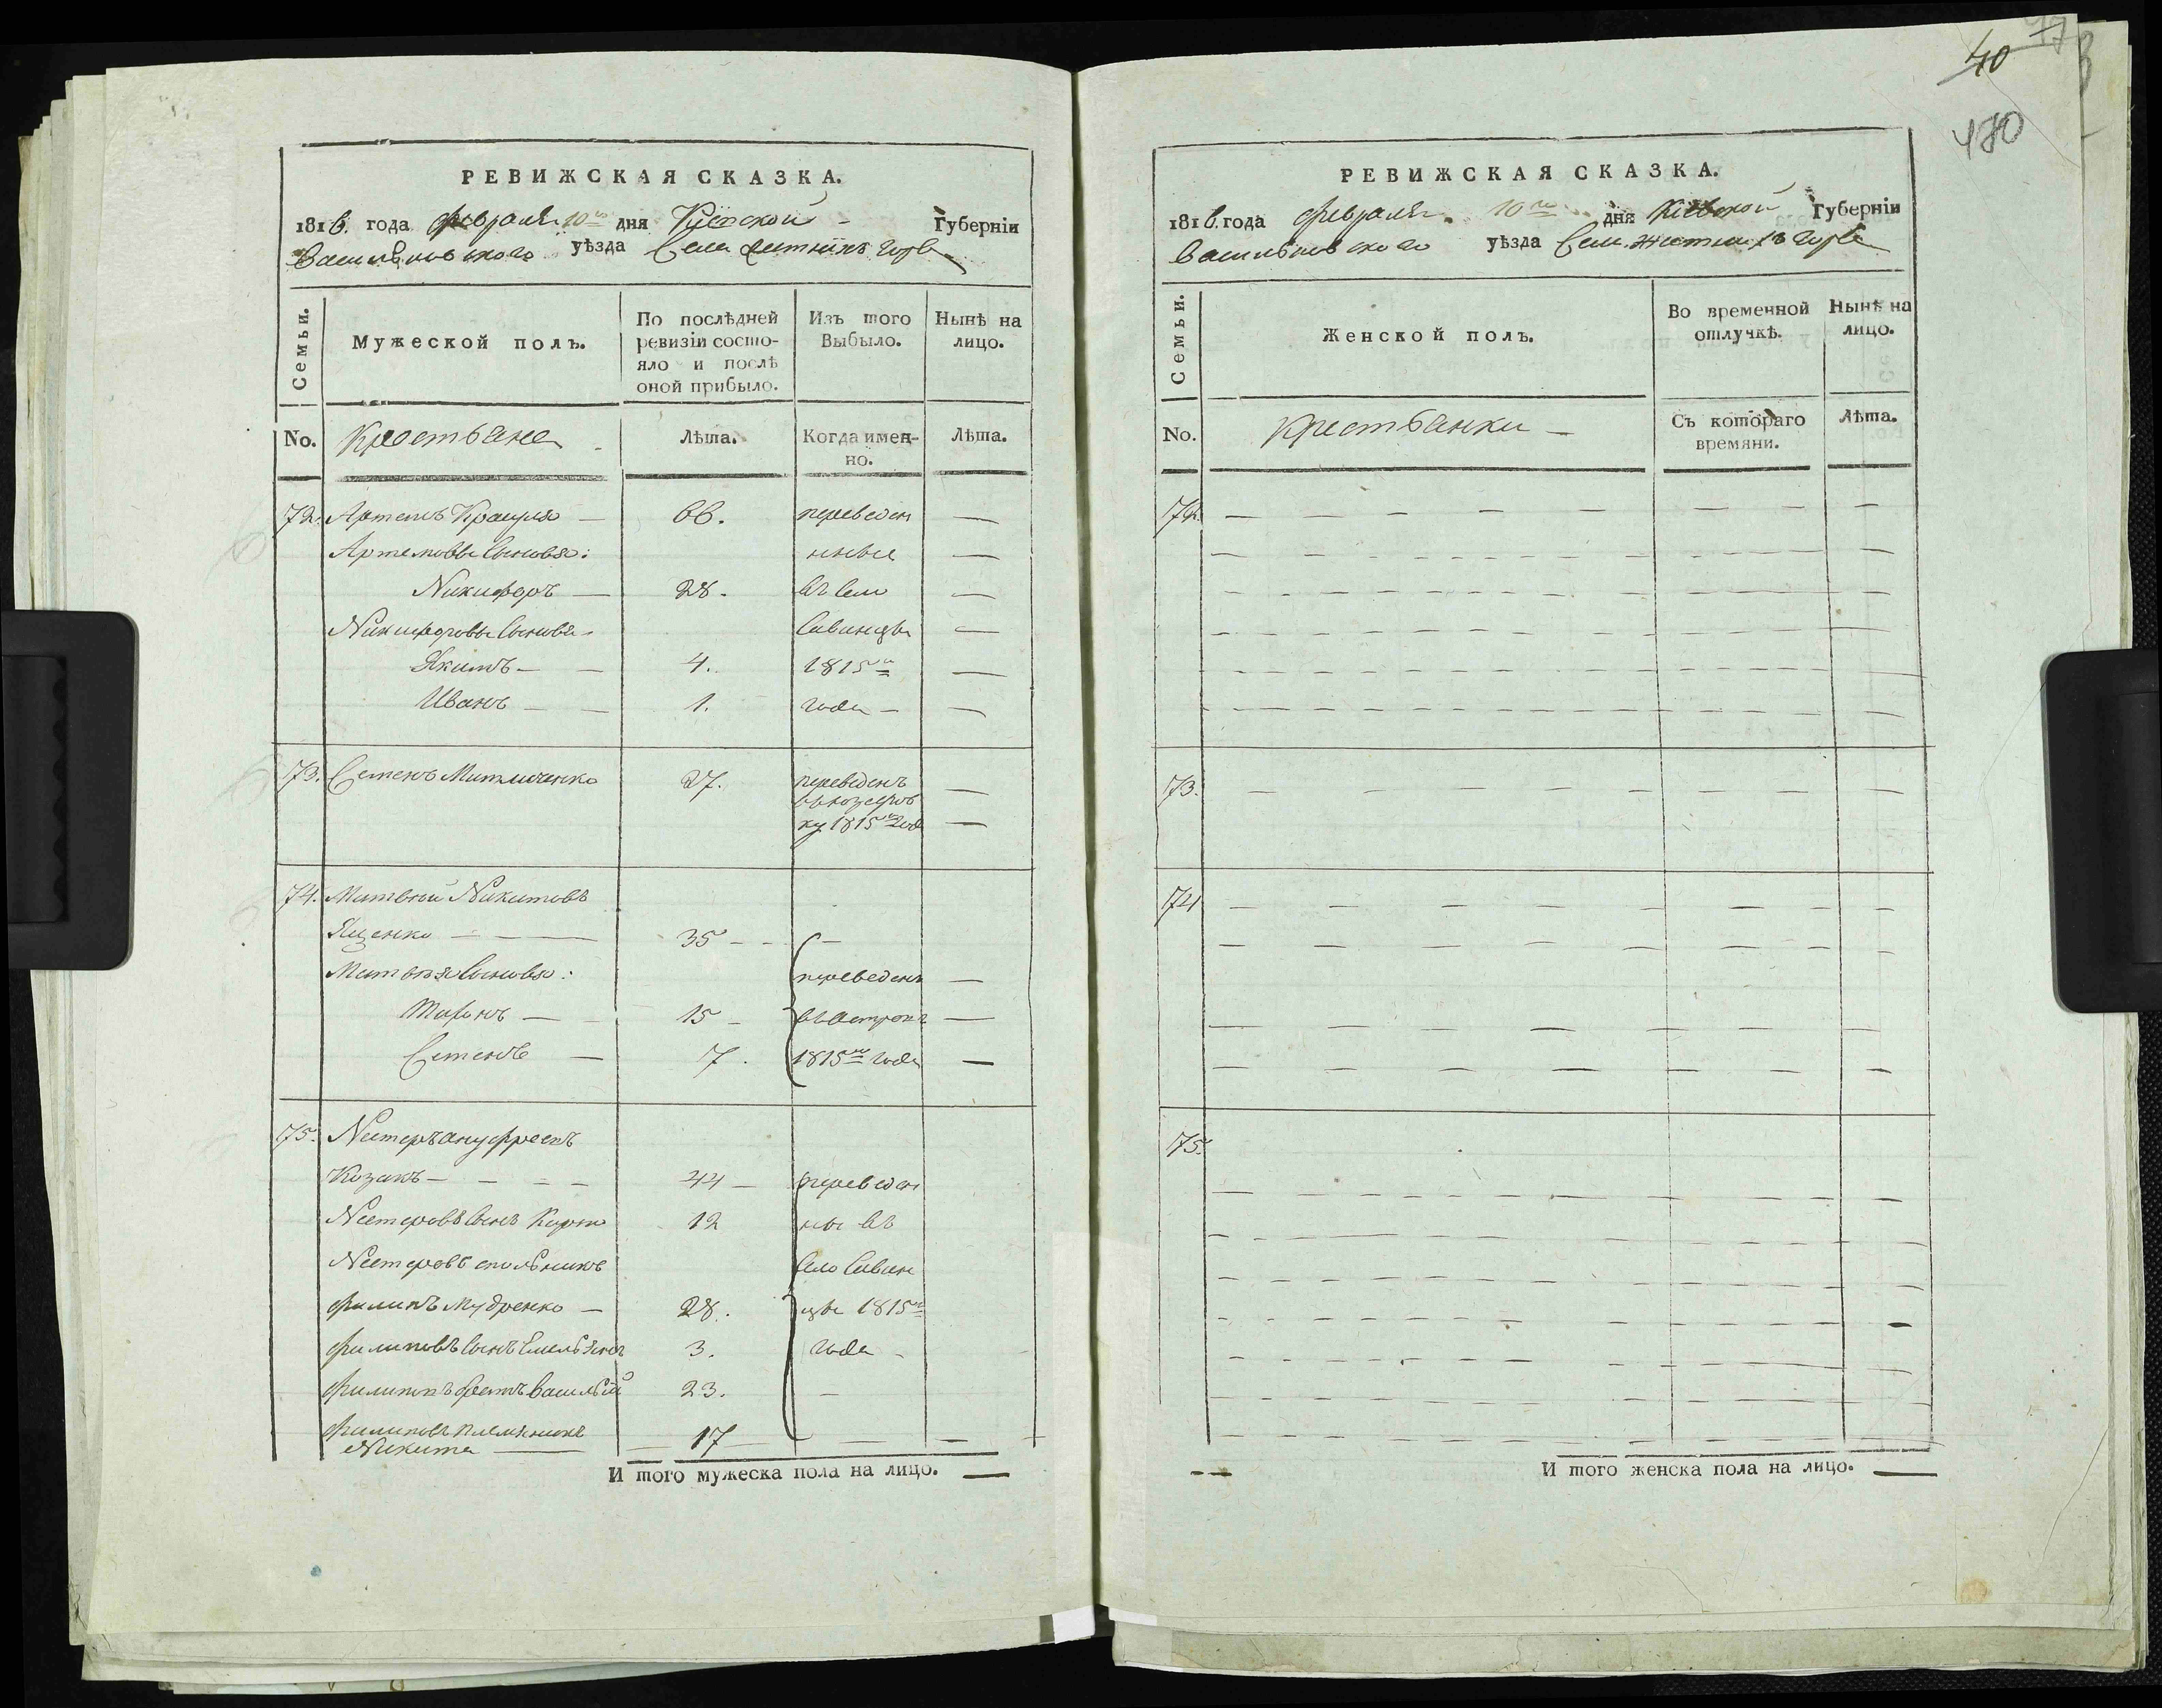 РЕВИЖСКАЯ СКАЗКА.
1816. года февраля 10го дня Кіевской Губерніи
Васильковского уѣзда Села Житнихъ Горъ
Семьи.
Мужеской полъ.
По послѣдней ревизіи состо-
яло и послѣ
оной прибыло.
Изъ того
Выбыло.
Нынѣ на
лицо.
No. Крестьяне Лѣта. Когда имен-
но. Лѣта.
72. Артемъ Кравуля — 66. переведен —
Артемовы Сыновья: нные —
Никифоръ — 28. въ село —
Никифоровы Сыновья Савинцы —
Якимъ — — 4. 1815го —
Иванъ — — 1. года — —
73. Семенъ 27. переведенъ —
ку 1815го года —
74. Матвѣй Никитовъ
Яценко — — 35 — —
Матвѣя Сыновья: переведены —
15 — въ Острокъ —
Семенъ — 7. 1815го года —
75. Нестеръ Ануфріевъ
Козакъ — — — — 44 — переведен
Нестеровъ сынъ Карпо 12 ны въ
Нестеровъ спольникъ село Савин
Филипъ Мудренко — 28. цы 1815го
Филиповъ сынъ Емельянъ 3. года —
Филиповъ братъ Василій 23. —
Филиповъ племянникъ
Никита — — 17 — — —
И того мужеска пола на лицо. —
40
480
РЕВИЖСКАЯ СКАЗКА.
1816. года февраля 10го дня Кіевской Губерніи
Васильковского уѣзда Села Житнихъ Горъ
Семьи.
Женской полъ.
Во временной
отлучкѣ.
Нынѣ на
лицо.
No. Крестьянки — Съ котораго
времяни. Лѣта.
72.
73.
74
75.
И того женска пола на лицо. —